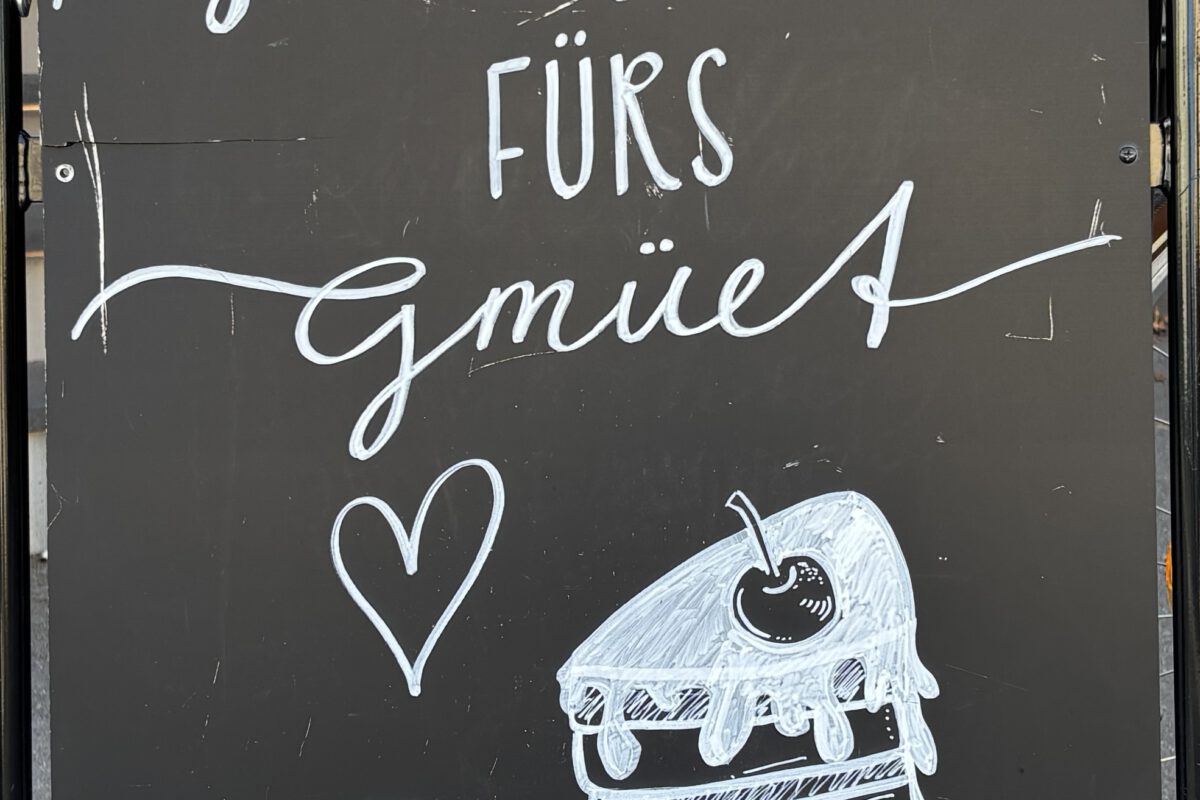 FÜRS
Gmüet